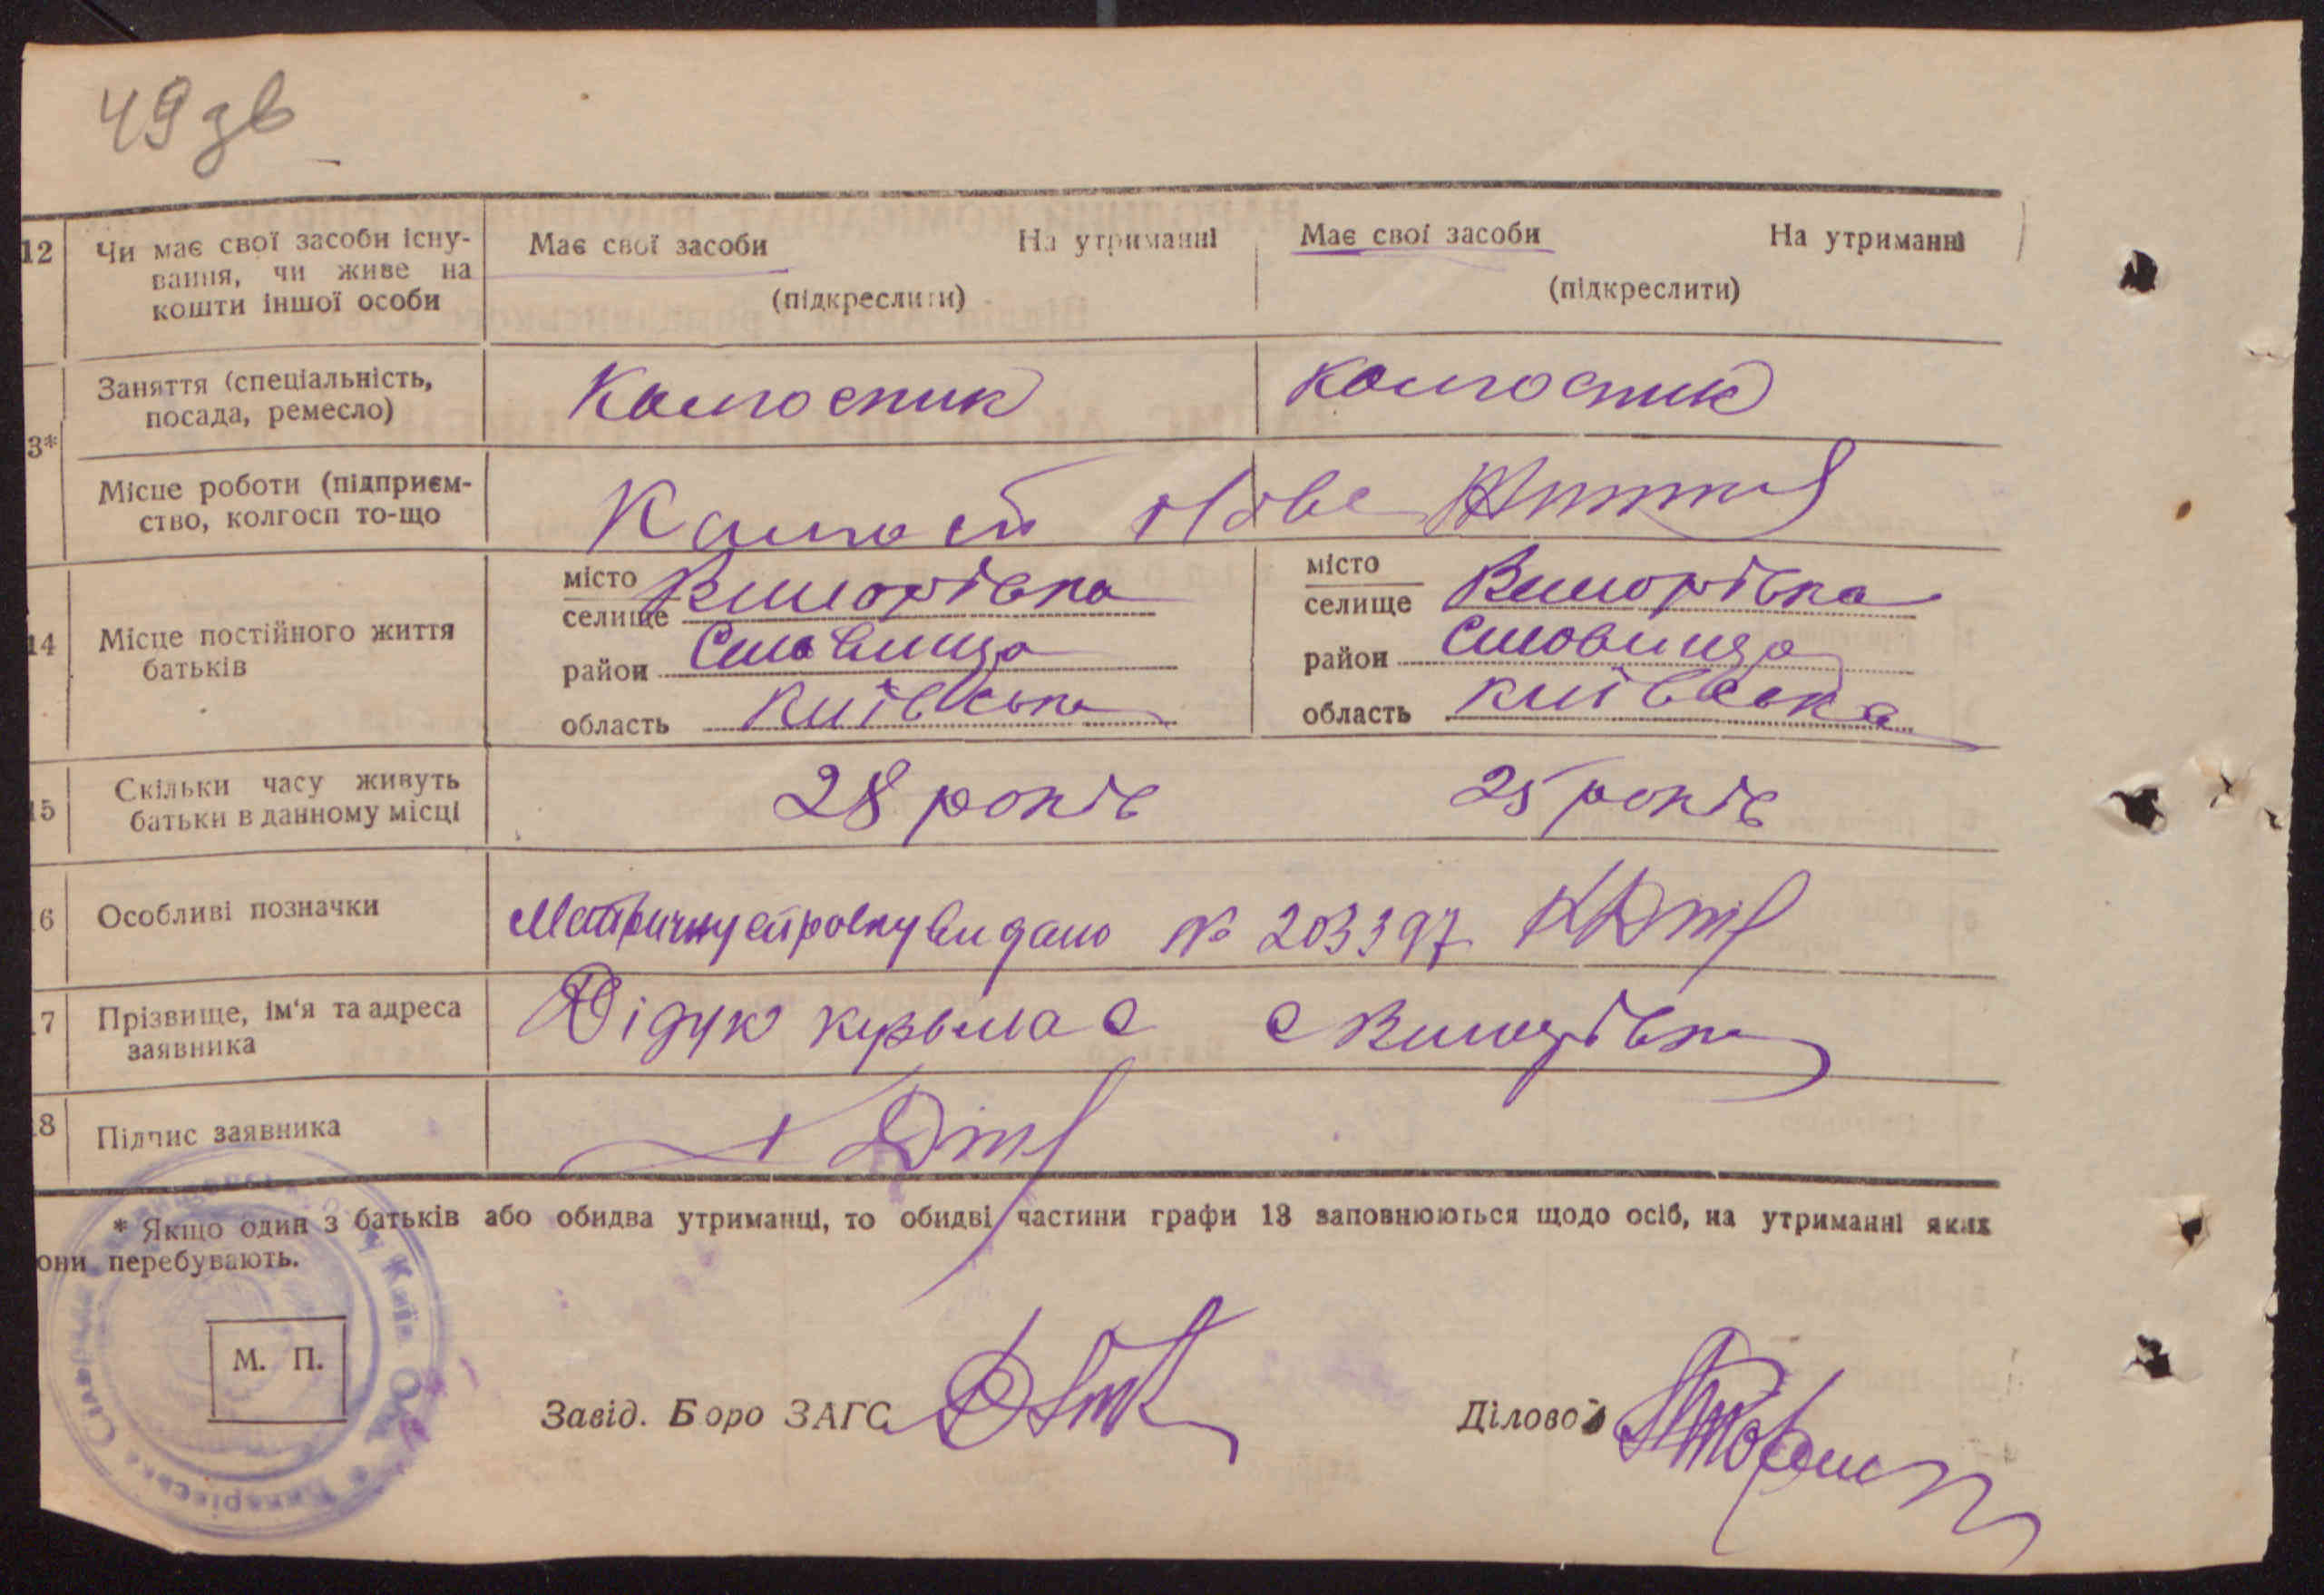 49 зв
12 Чи має свої засоби існу-
вання, чи живе на
кошти іншої особи
Має свої засоби На утриманні
(підкреслити)
Має свої засоби На утриманні
(підкреслити)
3*
Заняття (спеціальність,
посада, ремесло)
Колгоспник
колгоспник
Місце роботи (підприєм-
ство, колгосп то-що
Колгосп Нове Життя
14 Місце постійного життя
батьків
місто
селище
район
область Київська
місто
селище
район
область Київська
15 Скільки часу живуть
батьки в данному місці
28 років 25 років
16 Особливі позначки
видано № 203397
17 Прізвище, ім'я та адреса
заявника
Дідук
18 Підпис заявника
* Якщо один з батьків або обидва утриманці, то обидві частини графи 13 заповнюються щодо осіб, на утриманні яких
они перебувають.
М. П.
Завід. Бюро ЗАГС
Діловод